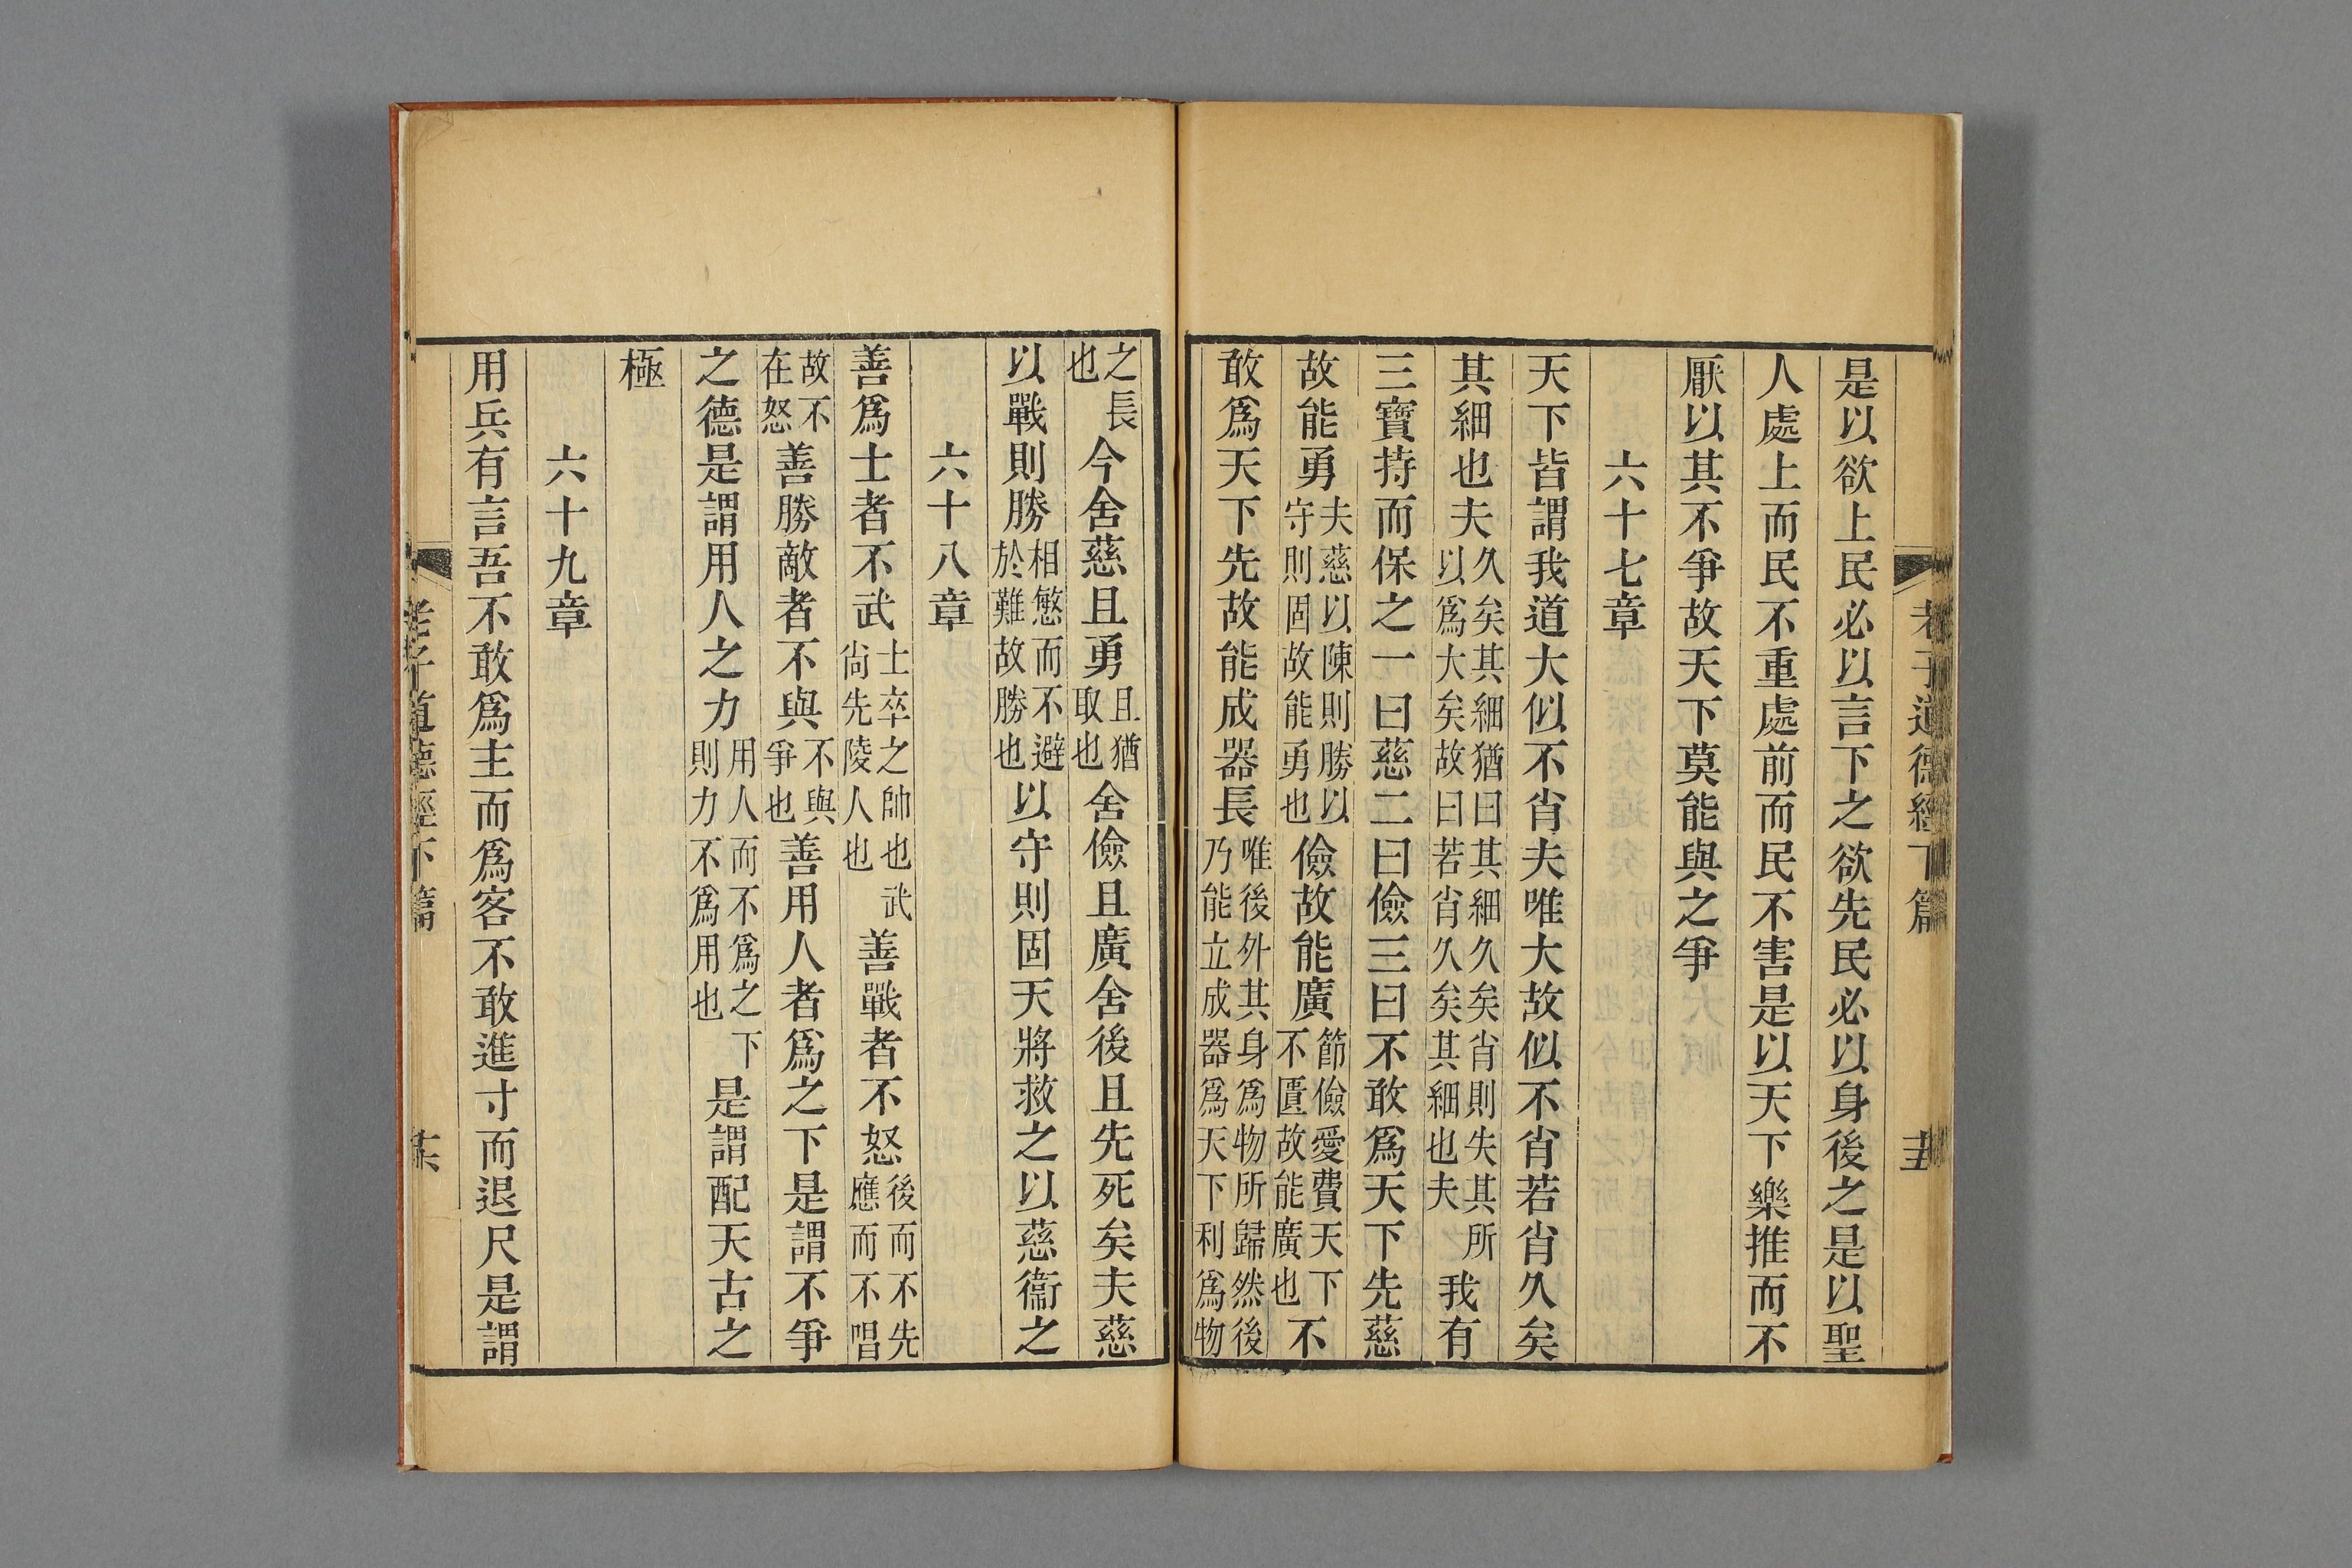 老子道德經下篇
是以欲上民必以言下之欲先民必以身後之是以聖
人處上而民不重處前而民不害是以天下樂推而不
厭以其不爭故天下莫能與之爭
六十七章
天下皆謂我道大似不肖夫唯大故似不肖若肖久矣
其細也夫久矣其細猶曰其細久矣肖則失其所以爲大矣故曰若肖久矣其細也夫我有
三寶持而保之一曰慈二曰儉三曰不敢爲天下先慈
故能勇夫慈以陳則勝以守則固故能勇也儉故能廣節儉愛費天下不匱故能廣也不
敢爲天下先故能成器長唯後外其身爲物所歸然後乃能立成器爲天下利爲物
之長也今舍慈且勇且猶取也舍儉且廣舍後且先死矣夫慈
以戰則勝相慜而不避於難故勝也以守則固天將救之以慈衞之
六十八章
善爲士者不武士卒之帥也武尙先陵人也善戰者不怒後而不先應而不唱
故不在怒善勝敵者不與不與爭也善用人者爲之下是謂不爭
之德是謂用人之力用人而不爲之下則力不爲用也是謂配天古之
極
六十九章
用兵有言吾不敢爲主而爲客不敢進寸而退尺是謂
老子道德經下篇